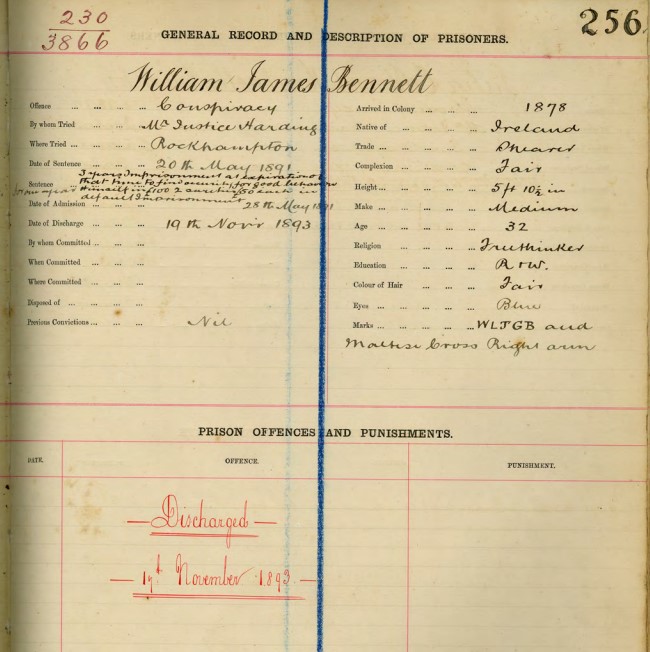 230
3866
256
GENERAL RECORD AND DESCRIPTION OF PRISONERS.
William James Bennett
Offence ... ... ... ... Conspiracy
By whom Tried ... ... ... Mr Justice Harding
Where Tried ... ... ... ... Rockhampton
Date of Sentence ... ... ... 20th May 1891
3 years Imprisonment at expiration of
Sentence that time to find security for good behavior
himself in £100 2 sureties £50 each in
default Imprisonment
Date of Admission ... ... 28th May 1891
Date of Discharge ... ... ... 19th Novr 1893
By whom Committed ... ... ...
When Committed ... ... ...
Where Committed ... ... ...
Disposed of ... ... ... ...
Previous Convictions ... ... ... Nil
Arrived in Colony ... ... ... 1878
Native of ... ... ... ... Ireland
Trade ... ... ... ... ... Shearer
Complexion ... ... ... ... Fair
Height ... ... ... ... ... 5 ft 10½ in
Make ... ... ... ... ... Medium
Age ... ... ... ... ... 32
Religion ... ... ... ... Freethinker
Education ... ... ... ... R & W.
Colour of Hair ... ... ... Fair
Eyes ... ... ... ... ... Blue
Marks ... ... ... ... WLJGB and
Maltese Cross Right arm
PRISON OFFENCES AND PUNISHMENTS.
DATE. OFFENCE. PUNISHMENT.
— Discharged —
— 19th November 1893 —